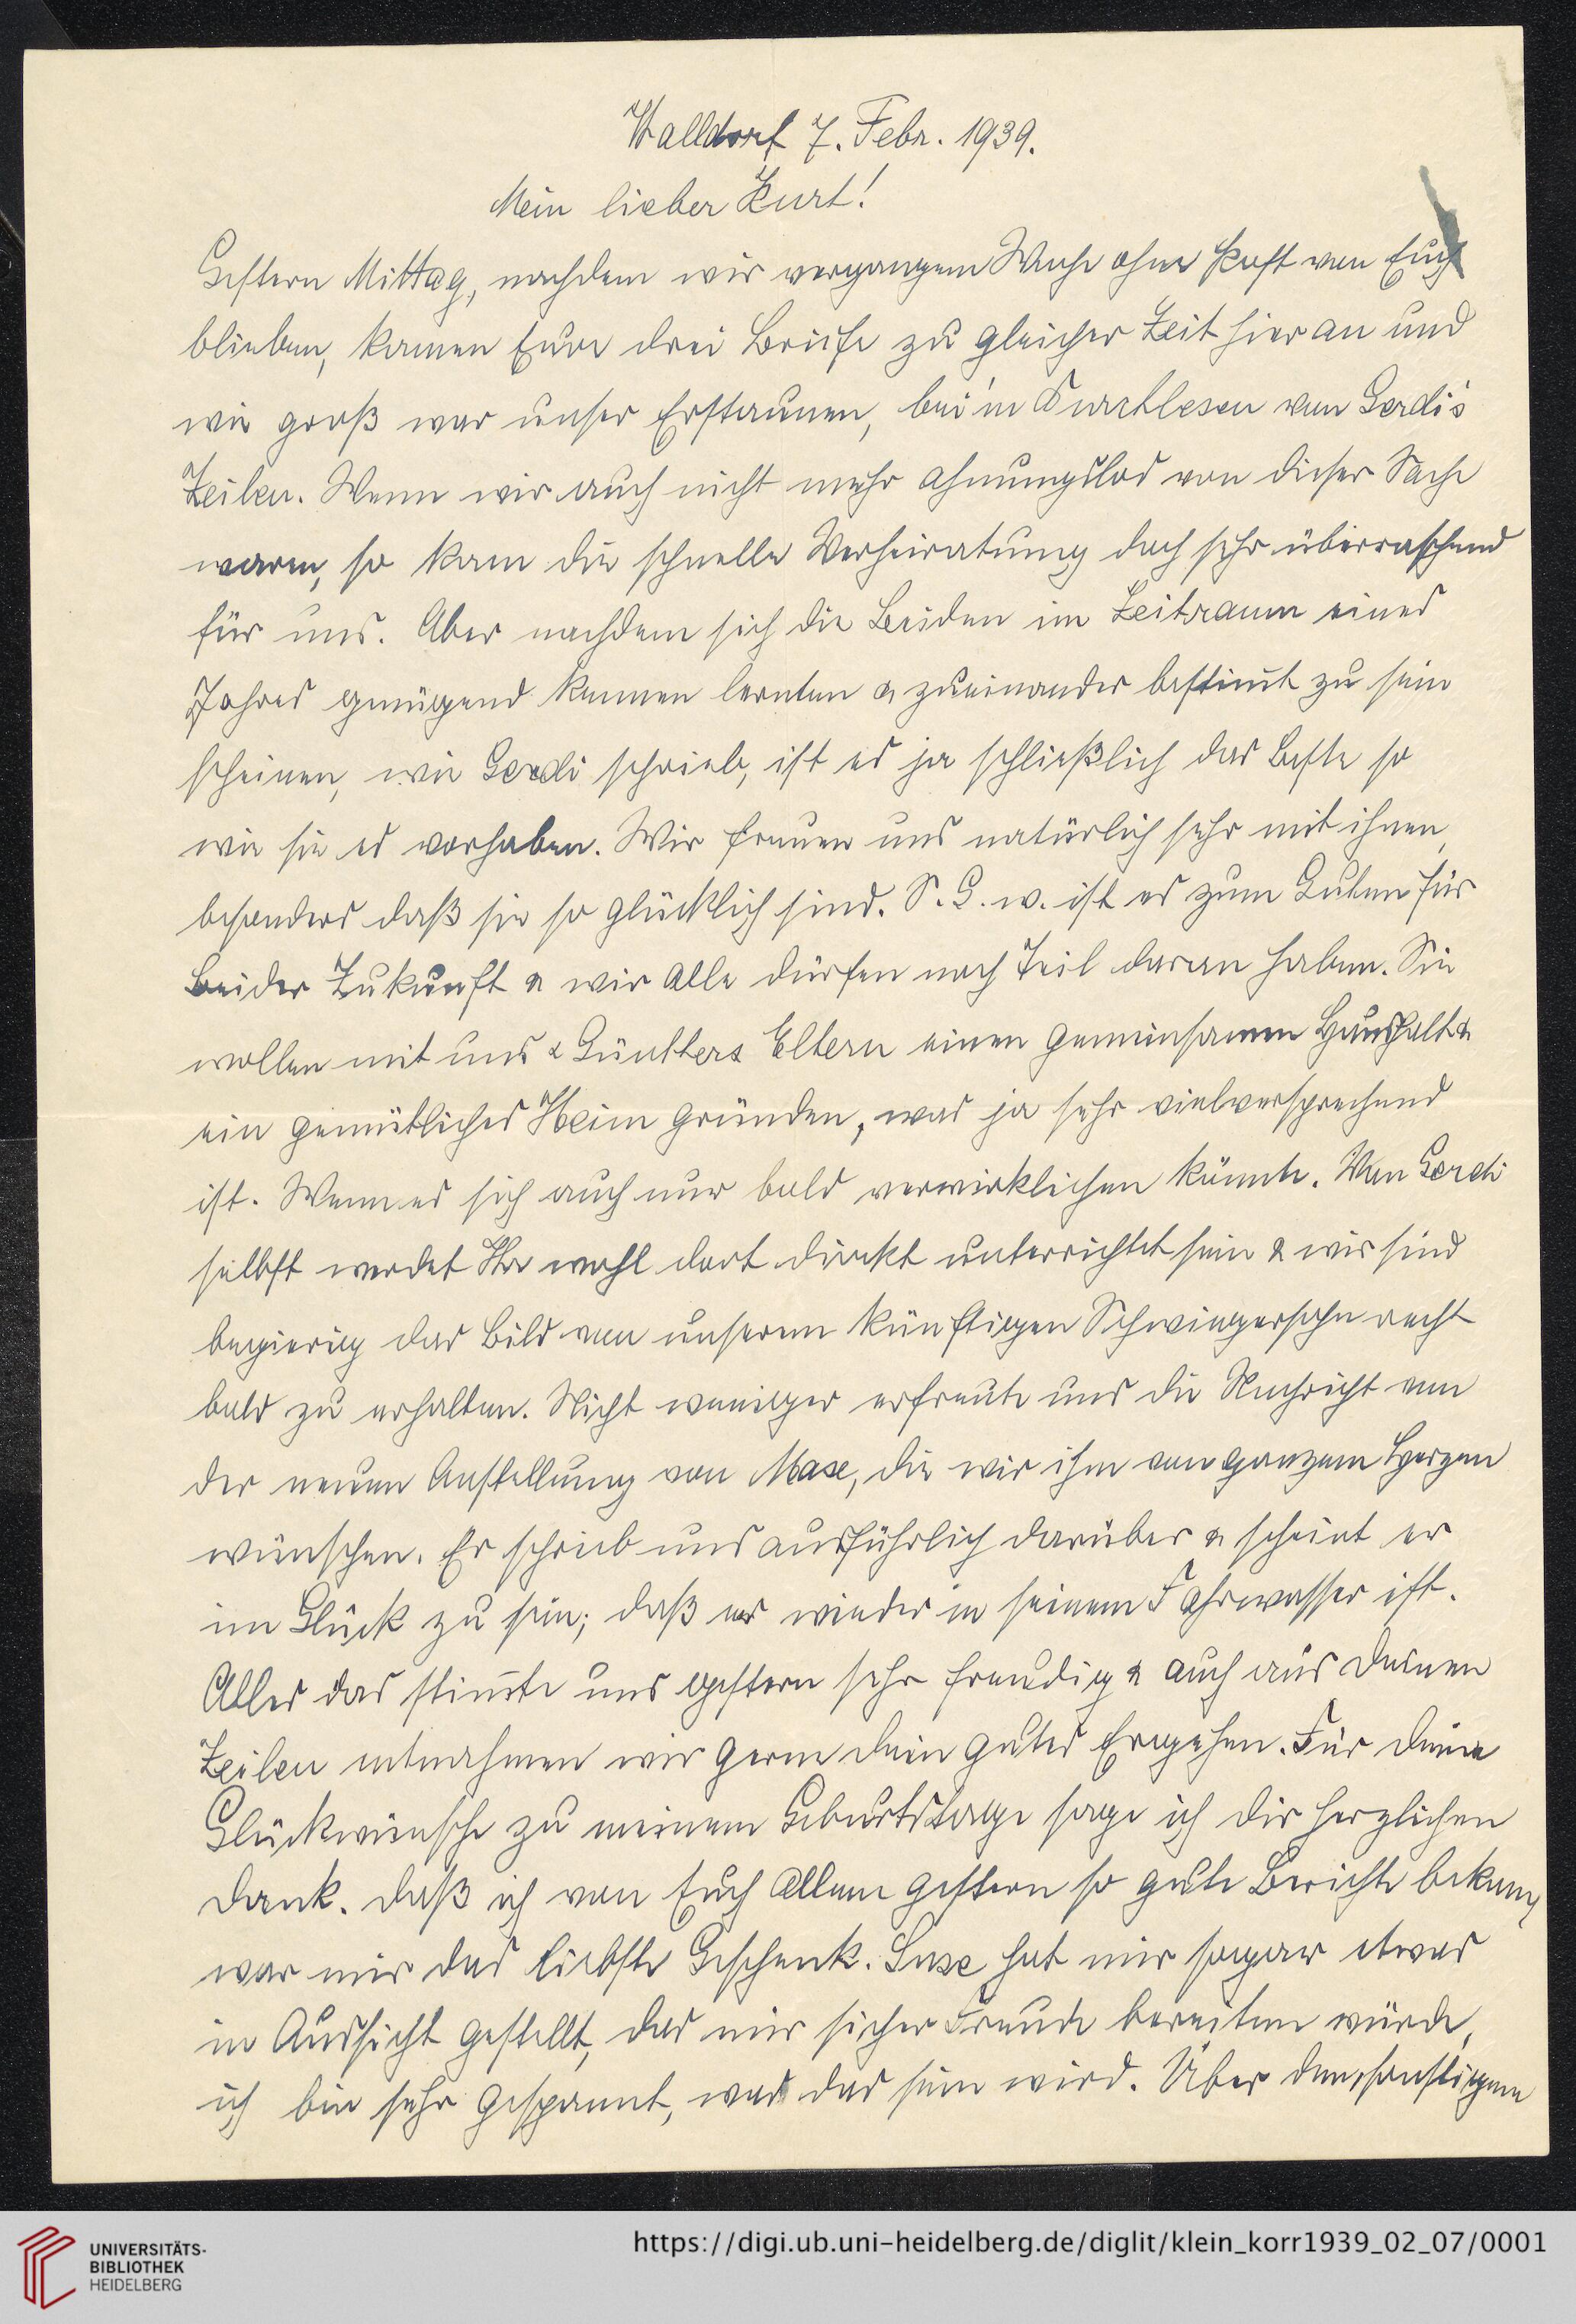 Walldorf 7. Febr. 1939.
Mein lieber Kurt!
Gestern Mittag, nachdem wir vergangene Woche ohne Post von Euch
blieben, kamen Eure drei Briefe zu gleicher Zeit hier an und
wie groß war unser Erstaunen, bei'm Durchlesen von Gerdi's
Zeilen. Wenn wir auch nicht mehr ahnungslos von dieser Sache
waren, so kam die schnelle Verheiratung doch sehr überraschend
für uns. Aber nachdem sich die Beiden im Zeitraum eines
Jahres genügend kennen lernten & zueinander bestim̅t zu sein
scheinen, wie Gerdi schrieb, ist es ja schließlich das Beste so
wie sie es vorhaben. Wir freuen uns natürlich sehr mit ihnen,
besonders daß sie so glücklich sind. S. G. w. ist es zum Guten für
beider Zukunft & wir alle dürfen noch Teil daran haben. Sie
wollen mit uns & Günthers Eltern einen gemeinsamen Haushalt &
ein gemütliches Heim gründen, was ja sehr vielversprechend
ist. Wenn es sich auch nur bald verwirklichen könnte. Von Gerdi
selbst werdet Ihr wohl dort direkt unterrichtet sein & wir sind
begierig das Bild von unserem künftigen Schwiegersohn recht
bald zu erhalten. Nicht weniger erfreute uns die Nachricht von
der neuen Anstellung von Max, die wir ihm von ganzem Herzen
wünschen. Er schrieb uns ausführlich darüber & scheint er
im Glück zu sein; daß er wieder in seinem Fahrwasser ist.
Alles das stim̅te uns gestern sehr freudig & auch aus Deinen
Zeilen entnahmen wir gerne Dein gutes Ergehen. Für Deine
Glückwünsche zu meinem Geburtstage sage ich Dir herzlichen
Dank. Daß ich von Euch Allen gestern so gute Berichte bekam,
war mir das liebste Geschenk. Suse hat mir sogar etwas
in Aussicht gestellt, das mir sicher Freude bereiten würde,
ich bin sehr gespannt, was das sein wird. Über den sonstigen
UNIVERSITÄTS-
BIBLIOTHEK
HEIDELBERG
https://digi.ub.uni-heidelberg.de/diglit/klein_korr1939_02_07/0001